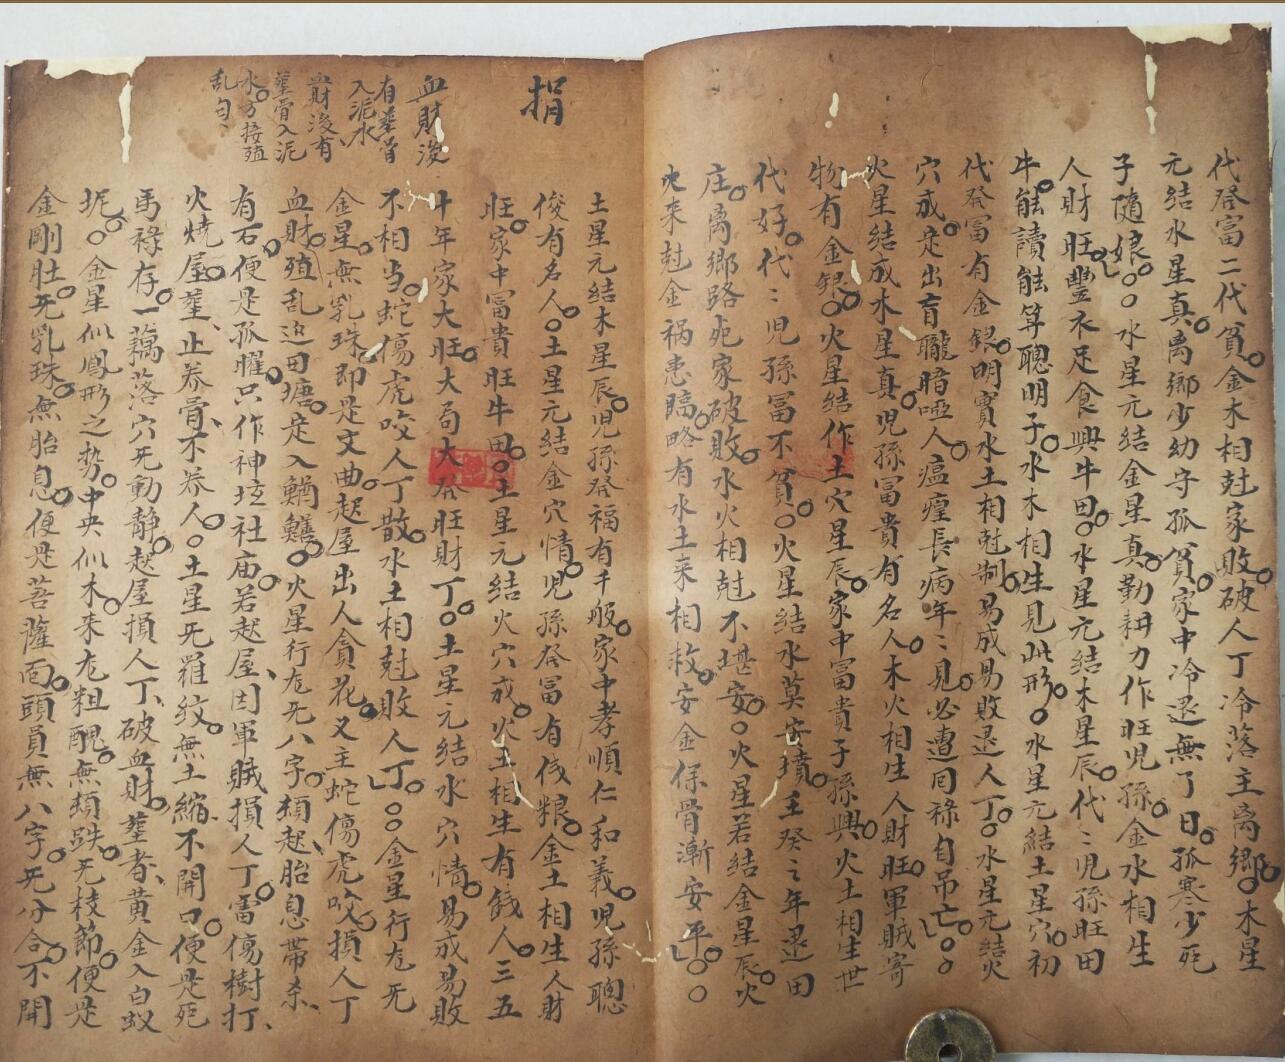 代發富二代貧金木相尅家敗破人丁冷落主离鄉木星
元結水星真离鄉少幼守孤貧家中冷退無了日孤寒少死
子隨娘水星元結金星真勤耕力作旺児孫金水相生
人財旺豐衣足食興牛田水星元結木星辰代〻児孫旺田
牛能讀能算聰明子水木相生見此形水星元結土星穴初
代發富有金銀明實水土相尅制易成易敗退人丁水星元結火
穴成定出盲聾暗啞人瘟瘴長病年〻見必遭回祿自吊亡
火星結成水星真児孫富貴有名人木火相生人財旺軍賊寄
物有金銀火星結作土穴星辰家中富貴子孫興火土相生世
代好代〻児孫富不貧火星結水莫安墳壬癸之年退田
庄离鄉路死家破敗水火相尅不堪安火星若結金星辰火
火来尅金祸患臨略有水土来相救安金保骨漸安平
土星元結木星辰児孫發福有千般家中孝順仁和義児孫聰
俊有名人土星元結金穴情児孫發富有伐粮金土相生人財
旺家中富貴旺牛田土星元結火穴成火土相生有錢人三五
十年家大旺大局大發旺財丁土星元結水穴情易成易敗
不相当蛇傷虎咬人丁散水土相尅敗人丁金星行龙无
金星無乳珠即是文曲起屋出人貪花又主蛇傷虎咬損人丁
血財殖乱迯田塘定入鰍鱔火星行龙无八字頦起胎息帶杀
有石便是孤曜只作神坛社庙若起屋因軍賊損人丁雷傷樹打
火燒屋塟止养骨不养人土星无羅紋無土縮不開口便是死
馬祿存一藕落穴无動靜起屋損人丁破血財塟者黄金入白蚁
坭金星似鳳形之势中央似木来龙粗醜無頦跌无枝節便是
金剛肚无乳珠無胎息便是菩薩面頭員無八字无分合不開
捐
血財沒
有塟骨
入泥水
血財沒有
塟骨入泥
水方接殖
乱句